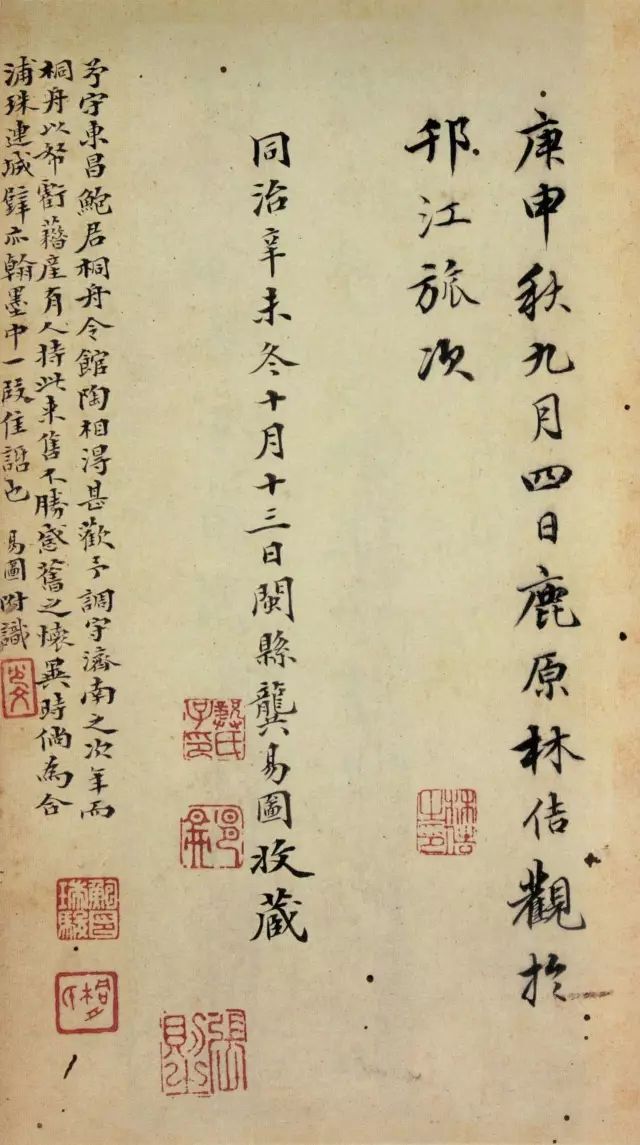 庚申秋九月四日鹿原林佶觀於
邗江旅次
同治辛未冬十月十三日閩縣龔易圖收藏
予守東昌鮑君桐舟令館陶相得甚歡予調守濟南之次年而
桐舟以帑虧藉產有人持此來售不勝感舊之懷異時倘為合
浦珠連城璧亦翰墨中一段佳話也 易圖附識